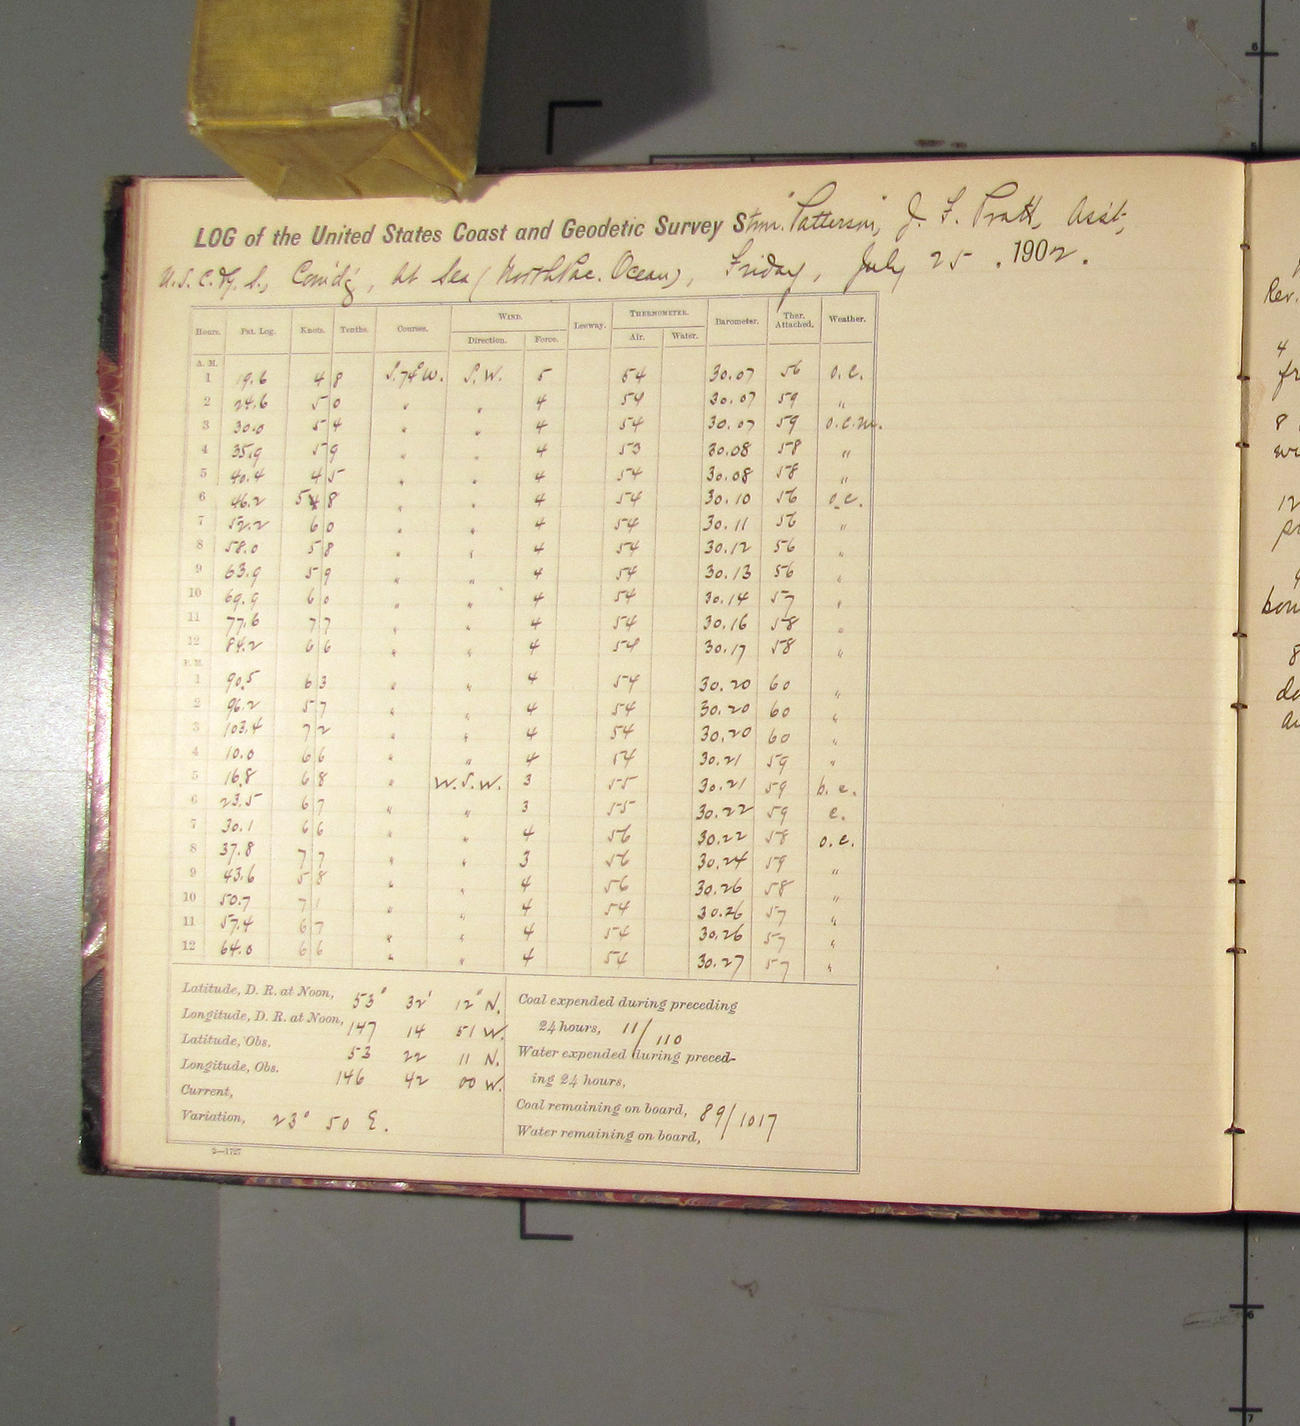 LOG of the United States Coast and Geodetic Survey Stmr. "Patterson", J. F. Pratt, Asst,
U.S.C.&G.S., Com'd'g, At Sea (North Pac. Ocean), Friday, July 25, 1902.
Hours. Pat. Log. Knots. Tenths. Courses. WIND. Leeway. THERMOMETER. Barometer. Ther. Attached. Weather.
Direction. Force. Air. Water.
A. M.
1 19.6 4 8 S.74°W. S.W. 5 54 30.07 56 o.c.
2 24.6 5 0 " " 4 54 30.07 59 "
3 30.0 5 4 " " 4 54 30.07 59 o.c.m.
4 35.9 5 9 " " 4 53 30.08 58 "
5 40.4 4 5 " " 4 54 30.08 58 "
6 46.2 5 8 " " 4 54 30.10 56 o.c.
7 52.2 6 0 " " 4 54 30.11 56 "
8 58.0 5 8 " " 4 54 30.12 56 "
9 63.9 5 9 " " 4 54 30.13 56 "
10 69.9 6 0 " " 4 54 30.14 57 "
11 77.6 7 7 " " 4 54 30.16 58 "
12 84.2 6 6 " " 4 54 30.17 58 "
P. M.
1 90.5 6 3 " " 4 54 30.20 60 "
2 96.2 5 7 " " 4 54 30.20 60 "
3 103.4 7 2 " " 4 54 30.20 60 "
4 10.0 6 6 " " 4 54 30.21 59 "
5 16.8 6 8 " W.S.W. 3 55 30.21 59 b.c.
6 23.5 6 7 " " 3 55 30.22 59 c.
7 30.1 6 6 " " 4 56 30.22 58 o.c.
8 37.8 7 7 " " 3 56 30.24 59 "
9 43.6 5 8 " " 4 56 30.26 58 "
10 50.7 7 1 " " 4 54 30.26 57 "
11 57.4 6 7 " " 4 54 30.26 57 "
12 64.0 6 6 " " 4 54 30.27 57 "
Latitude, D. R. at Noon, 53° 32' 12" N.
Longitude, D. R. at Noon, 147 14 51 W.
Latitude, Obs. 53 22 11 N.
Longitude, Obs. 146 42 00 W.
Current,
Variation, 23° 50 E.
Coal expended during preceding
24 hours, 11/110
Water expended during preced-
ing 24 hours,
Coal remaining on board, 89/1017
Water remaining on board,
2—1727
Rev.
4
fr
8
12
8